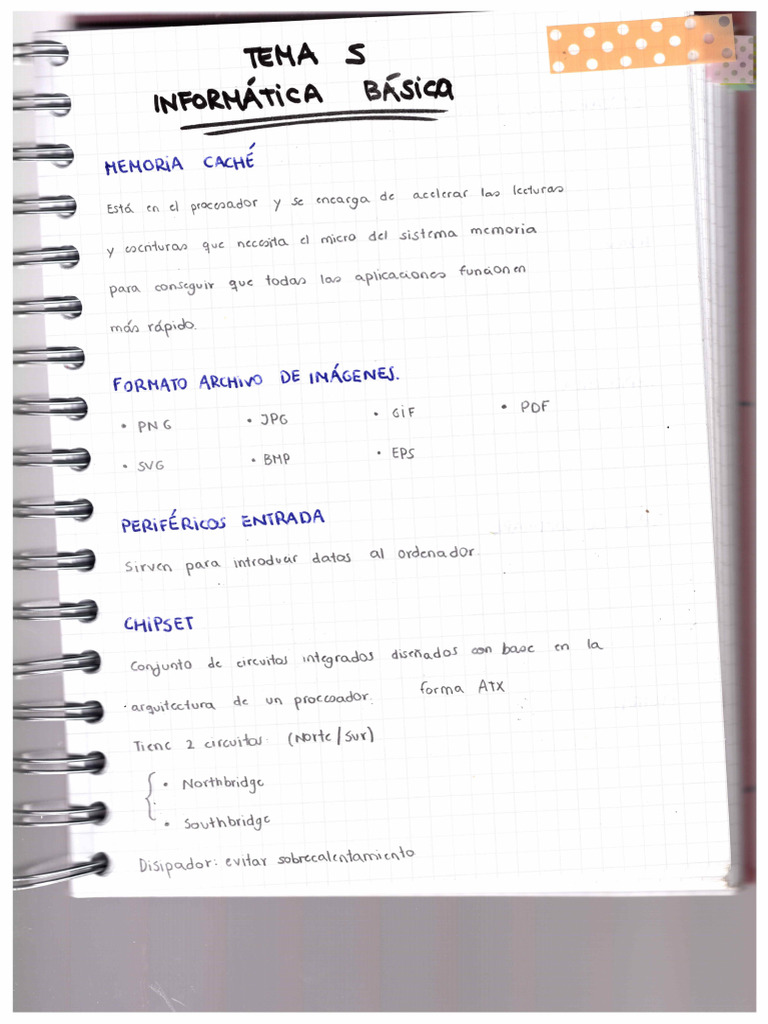 TEMA 5
INFORMÁTICA BÁSICA
MEMORIA CACHÉ
Está en el procesador y se encarga de acelerar las lecturas
y escrituras que necesita el micro del sistema memoria
para conseguir que todas las aplicaciones funcionen
más rápido.
FORMATO ARCHIVO DE IMÁGENES.
• PNG • JPG • GIF • PDF
• SVG • BMP • EPS
PERIFÉRICOS ENTRADA
Sirven para introducir datos al ordenador
CHIPSET
Conjunto de circuitos integrados diseñados con base en la
arquitectura de un procesador. forma ATX
Tiene 2 circuitos: (Norte/Sur)
• Northbridge
• Southbridge
Disipador: evitar sobrecalentamiento